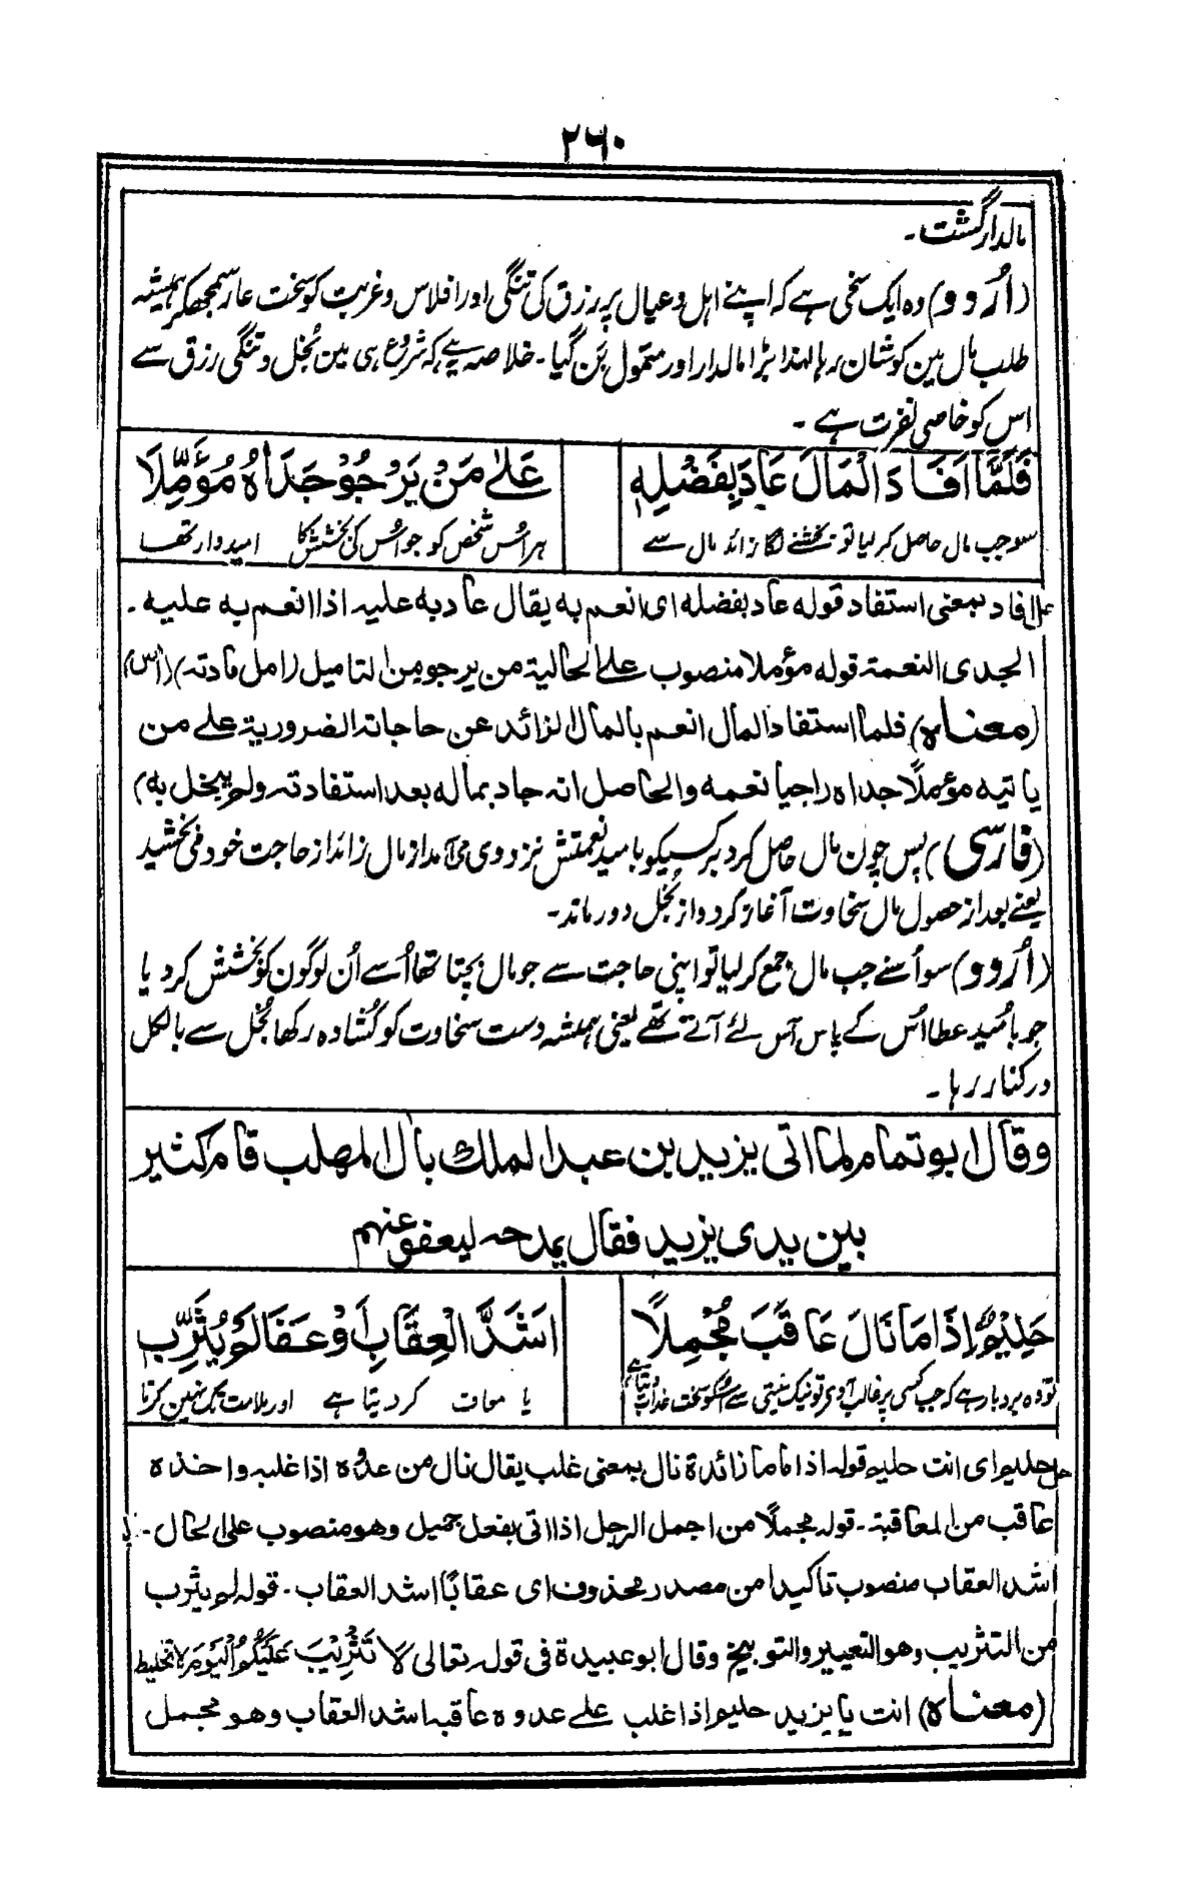 ۲۶۰
مالدار گشت۔
(اُردو) وہ ایک سخی ہے کہ اپنے اہل و عیال پر رزق کی تنگی اور افلاس و غربت کو سخت عار سمجھکر ہمیشہ
طلب مال مین کوشان رہا لہذا بڑا مالدار اور متمول بن گیا۔ خلاصہ یہ ہے کہ شروع ہی مین بُخل و تنگی رزق سے
اس کو خاصی نفرت ہے۔
فَلَمَّا اَفَادَ الْمَالَ عَادَ بِفَضْلِهٖ عَلٰى مَنْ يَرْجُوْ جَدَاهُ مُؤَمِّلَا
سو جب مال حاصل کر لیا تو بخشنے لگا زائد مال سے ہر اُس شخص کو جو اُس کی بخشش کا امیدوار تھا
افاد بمعنى استفاد قوله عاد بفضله اى انعم به يقال عاد به عليه اذا انعم به عليه۔
الجدى النعمة قوله مؤملا منصوب على الحالية من يرجو من التاميل
(معناه) فلما استفاد المال انعم بالمال الزائد عن حاجاته الضرورية على من
ياتيه مؤملًا جداه راجيا نعمه والحاصل انه جاد بماله بعد استفادته ولم يبخل به)
(فارسی) پس چون مال حاصل کرد بر کسیکہ بامید نعمتش نزد وی می آمد از مال زائد از حاجت خود می بخشید
یعنے بعد از حصول مال سخاوت آغاز کرد و از بخل دور ماند۔
(اُردو) سو اُسنے جب مال جمع کر لیا تو اپنی حاجت سے جو مال بچتا تھا اُسے اُن لوگون کو بخشش کر دیا
جو بامُید عطا اُس کے پاس آس لئے آتے تھے یعنی ہمیشہ دست سخاوت کو کشادہ رکھا بُخل سے بالکل
درکنار رہا۔
وقال ابو تمام لما اتى يزيد بن عبد الملك بآل المهلب قام كثير
بين يدى يزيد فقال يمدحه ليعفو عنهم
حَلِيْمٌ اِذَا مَا نَالَ عَاقَبَ مُجْمِلًا اَشَدَّ الْعِقَابِ اَوْ عَفَا لَمْ يُثَرِّبِ
تو وہ بردبار ہے کہ جب کسی پر غالب آوی تو نیک نیتی سے اسکو سخت عذاب دیتا ہے یا معاف کر دیتا ہے اور ملامت تک نہین کرتا
حليم اى انت حليم قوله اذا ما ما زائدة نال بمعنى غلب يقال نال من عدوه اذا غلبه واخذه
عاقب من المعاقبة۔ قوله مجملًا من اجمل الرجل اذا اتى بفعل جميل وهو منصوب على الحال۔
اشد العقاب منصوب تاكيدا من مصدر محذوف اى عقابًا اشد العقاب۔ قوله لم يثرب
من التثريب وهو التعيير والتوبيخ وقال ابو عبيدة فى قوله تعالى لَا تَثْرِيْبَ عَلَيْكُمُ الْيَوْمَ لا تخليط
(معناه) انت يا يزيد حليم اذا غلب على عدوه عاقبه اشد العقاب وهو مجمل